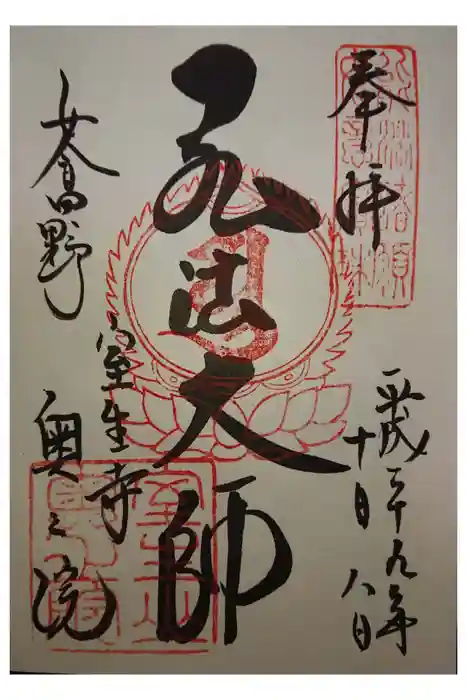 奉拝
平成二十九年
十月八日
弘法大師
室生寺
女人高野
奥之院